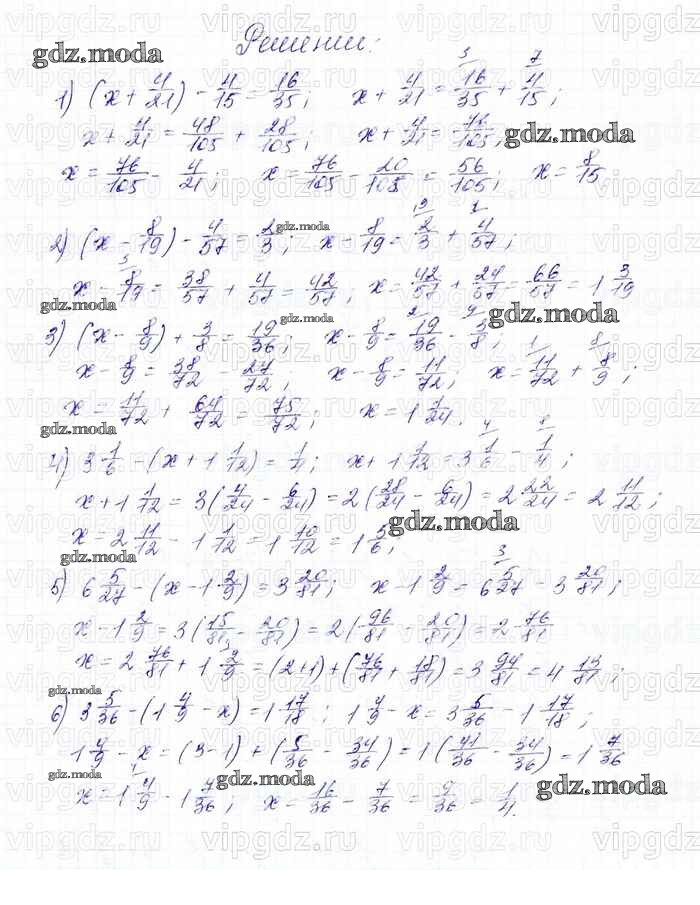 Решении:
gdz.moda
1) (x + 4/21) - 4/15 = 16/35; x + 4/21 = 16/35 + 4/15;
x + 4/21 = 48/105 + 28/105; x + 4/21 = 76/105;
gdz.moda
x = 76/105 - 4/21; x = 76/105 - 20/105 = 56/105; x = 8/15
gdz.moda
2) (x - 8/19) - 4/57 = 2/3; x - 8/19 = 2/3 + 4/57;
x - 8/19 = 38/57 + 4/57 = 42/57; x = 42/57 + 24/57 = 66/57 = 1 3/19
gdz.moda gdz.moda gdz.moda
3) (x - 8/9) + 3/8 = 19/36; x - 8/9 = 19/36 - 3/8;
x - 8/9 = 38/72 - 27/72; x - 8/9 = 11/72; x = 11/72 + 8/9;
x = 11/72 + 64/72 = 75/72; x = 1 1/24.
gdz.moda
4) 3 1/6 - (x + 1 1/12) = 1/4; x + 1 1/12 = 3 1/6 - 1/4;
x + 1 1/12 = 3(4/24 - 6/24) = 2(28/24 - 6/24) = 2 22/24 = 2 11/12;
gdz.moda
x = 2 11/12 - 1 1/12 = 1 10/12 = 1 5/6;
gdz.moda
5) 6 5/27 - (x - 1 2/9) = 3 20/81; x - 1 2/9 = 6 5/27 - 3 20/81;
x - 1 2/9 = 3(15/81 - 20/81) = 2(96/81 - 20/81) = 2 76/81
x = 2 76/81 + 1 2/9 = (2+1) + (76/81 + 18/81) = 3 94/81 = 4 13/81;
gdz.moda
6) 3 5/36 - (1 4/9 - x) = 1 17/18; 1 4/9 - x = 3 5/36 - 1 17/18;
1 4/9 - x = (3-1) + (5/36 - 34/36) = 1(41/36 - 34/36) = 1 7/36
gdz.moda gdz.moda gdz.moda
x = 1 4/9 - 1 7/36; x = 16/36 - 7/36 = 9/36 = 1/4.